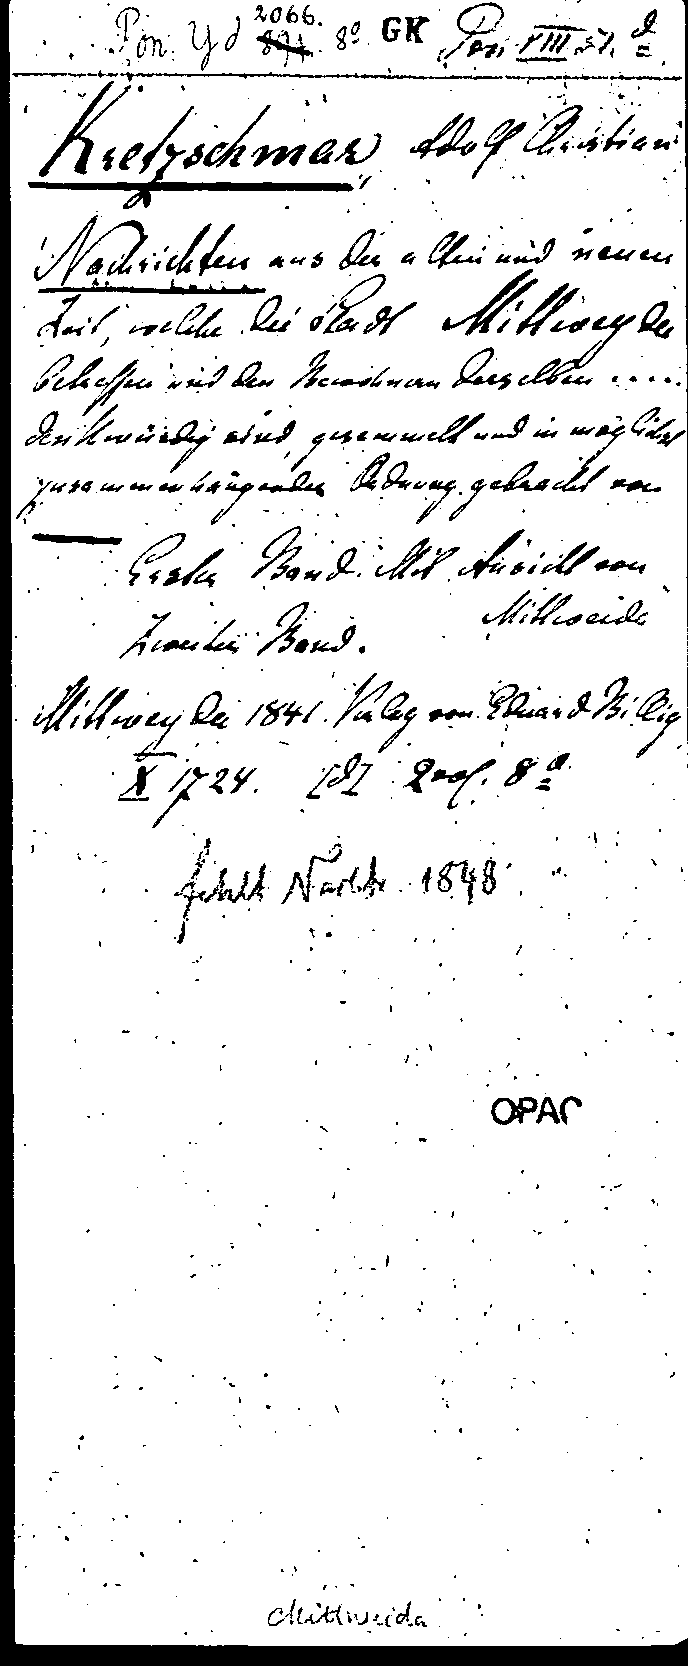 Pon Yd 2066. 8° GK Pon VIII 57. d
Kretzschmar, Adolf Christian
Nachrichten aus der alten und neuen
Zeit, welche die Stadt Mittweyda
betreffen und den Bewohnern derselben ....
denkwürdig sind, gesammelt und in möglichst
zusammenhängender Ordnung gebracht von
—
Erster Band. Mit Ansicht von
Mittweida
Zweiter Band.
Mittweyda 1841. Verlag von Eduard Billig
X 1724. [d] 2 vol. 8°
1848
OPAC
Mittweida